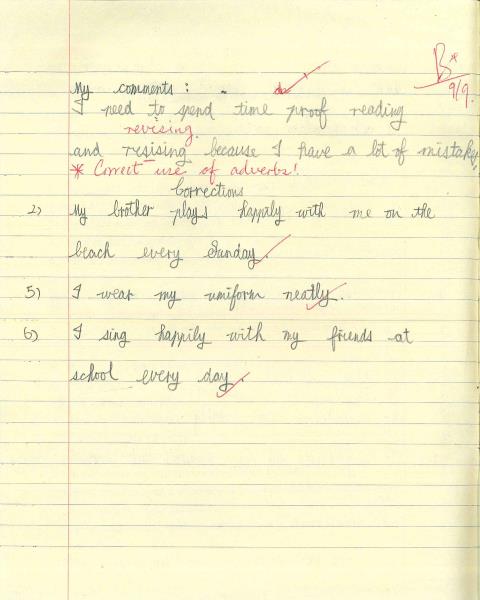 B*
9/9
My comments :
I need to spend time proof reading
revising.
and resising because I have a lot of mistakes
* Correct use of adverbs!
Corrections
2) My brother plays happily with me on the
beach every Sunday.
5) I wear my uniform neatly.
6) I sing happily with my friends at
school every day.